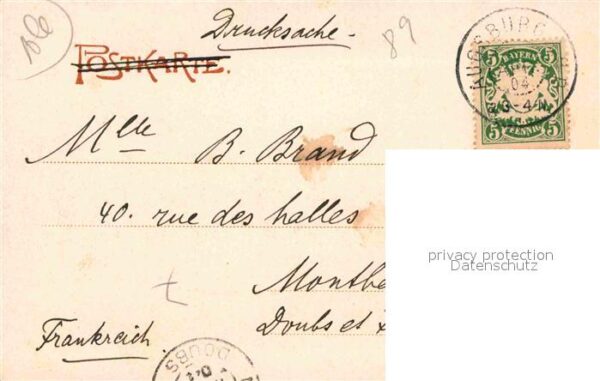 Drucksache.
89
POSTKARTE.
AUGSBURG
04
3-4 N.
5 BAYERN 5
5 PFENNIG 5
Mlle B. Brand
40. rue des halles
privacy protection
Datenschutz
Montbe
Doubs et
Frankreich.
DOUBS
04